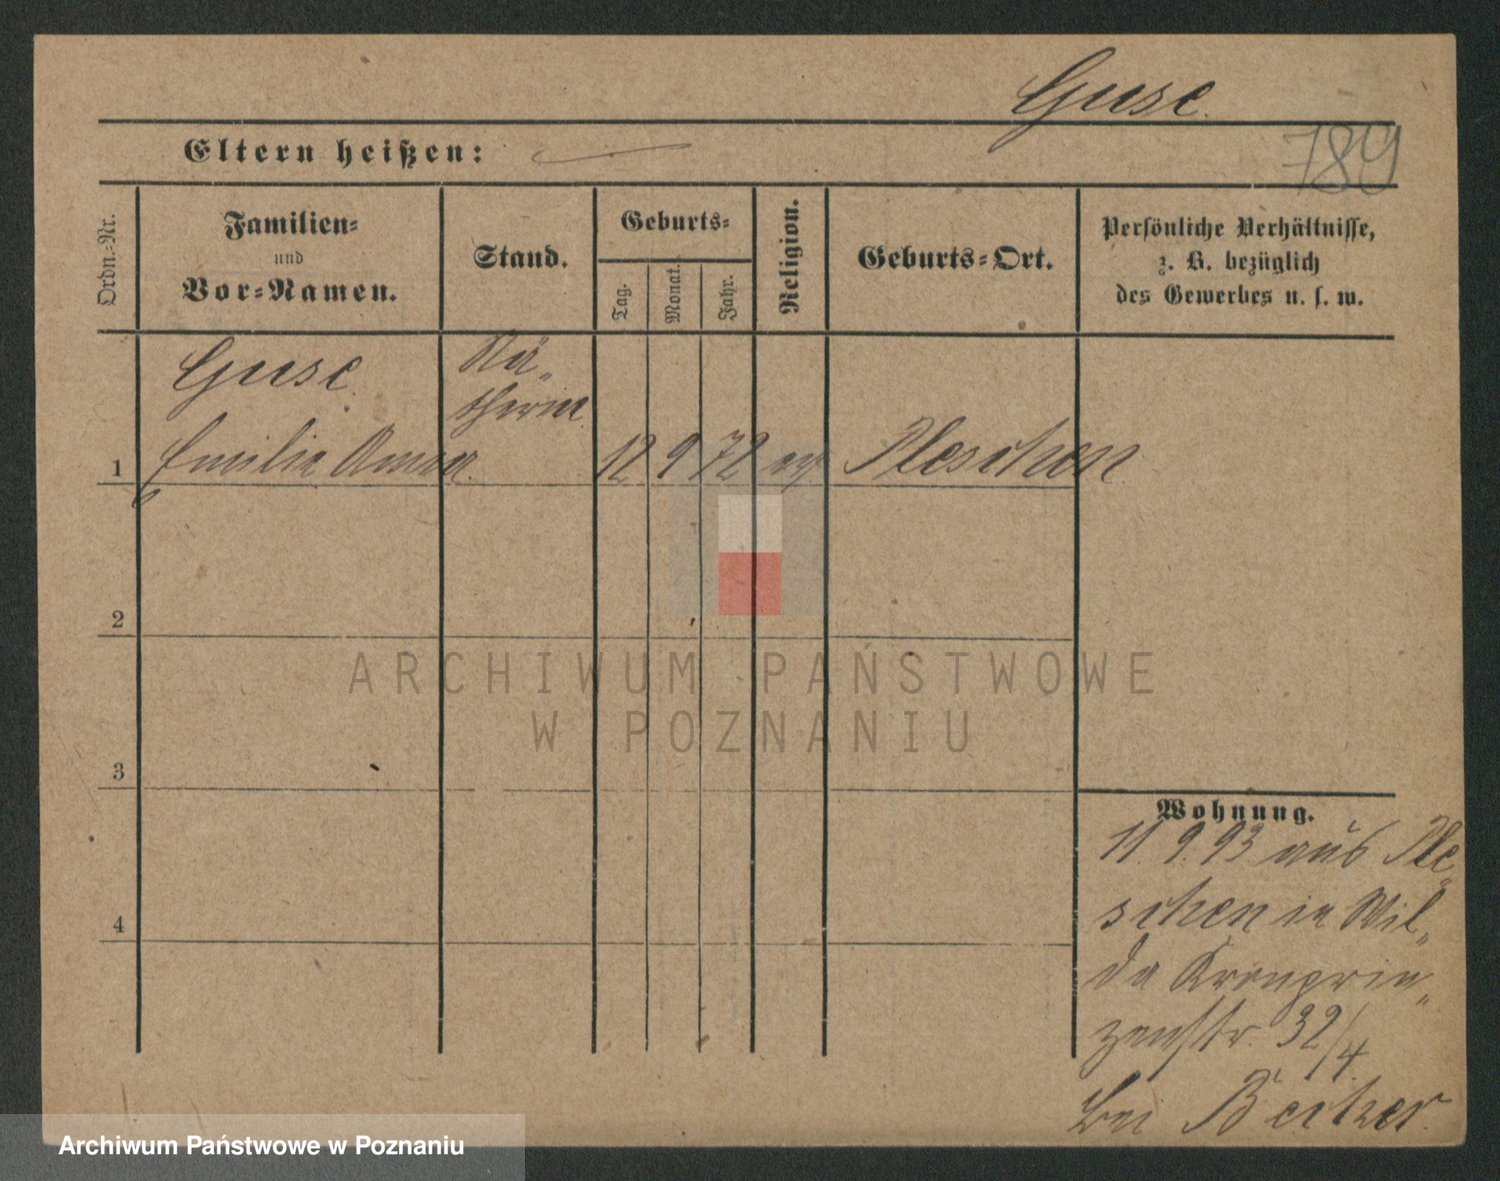 Guse.
789
Eltern heißen: —
Ordn.-Nr.
Familien-
und
Vor-Namen.
Stand.
Geburts-
Tag.
Monat.
Jahr.
Religion.
Geburts-Ort.
Persönliche Verhältnisse,
z. B. bezüglich
des Gewerbes u. s. w.
Guse.
Nä-
therin
1 Emilie Anna. 12 9 72 ev. Pleschen
2
3
4
ARCHIWUM PAŃSTWOWE
W POZNANIU
Wohnung.
11.9.93 aus Ple-
schen in Wil-
da Kronprin-
zenstr. 32/4.
bei Becker.
Archiwum Państwowe w Poznaniu